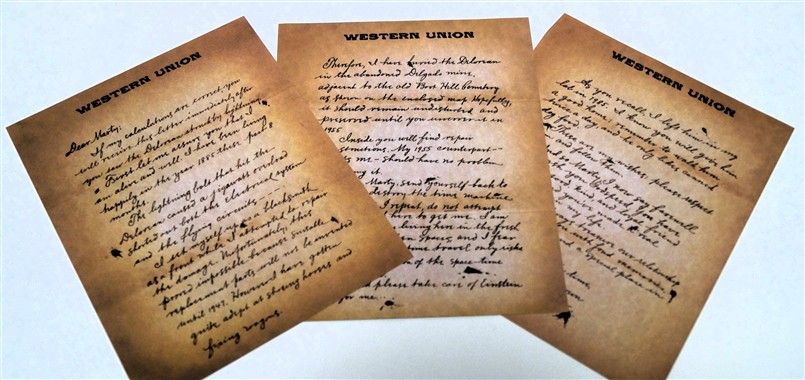 WESTERN UNION
Dear Marty,
If my calculations are correct, you
will receive this letter immediately after
you saw the Delorean struck by lightning.
First let me assure you that I
am alive and well. I have been living
happily in the year 1885 these past 8
months.
The lightning bolt that hit the
Delorean caused a jigawatt overload
shorted out both the electrical system
and the flying circuits
I set myself up as a blacksmith
as a front while I attempted to repair
the damage. Unfortunately, this
proved impossible because suitable
replacement parts will not be invented
until 1947. However, I have gotten
quite adept at shoeing horses and
fixing wagons.
WESTERN UNION
Therefore, I have buried the Delorean
in the abandoned Delgado mine,
adjacent to the old Boot Hill Cemetery
as shown on the enclosed map. Hopefully,
it should remain undisturbed and
preserved until you uncover it in
1955
Inside you will find repair
My 1955 counterpart
is me - should have no problem
it
Marty, send yourself back to
destroy the time machine
I repeat, do not attempt
here to get me. I am
living here in the fresh
spaces, and I fear
time travel only risks
of the space time
please take care of Einstein
for me
WESTERN UNION
As you recall, I left him in my
lab in 1985.
to walk him
a day and he only likes canned
please respect
farewell
You have
a kind and loyal friend
my life
our relationship
a special place in
time